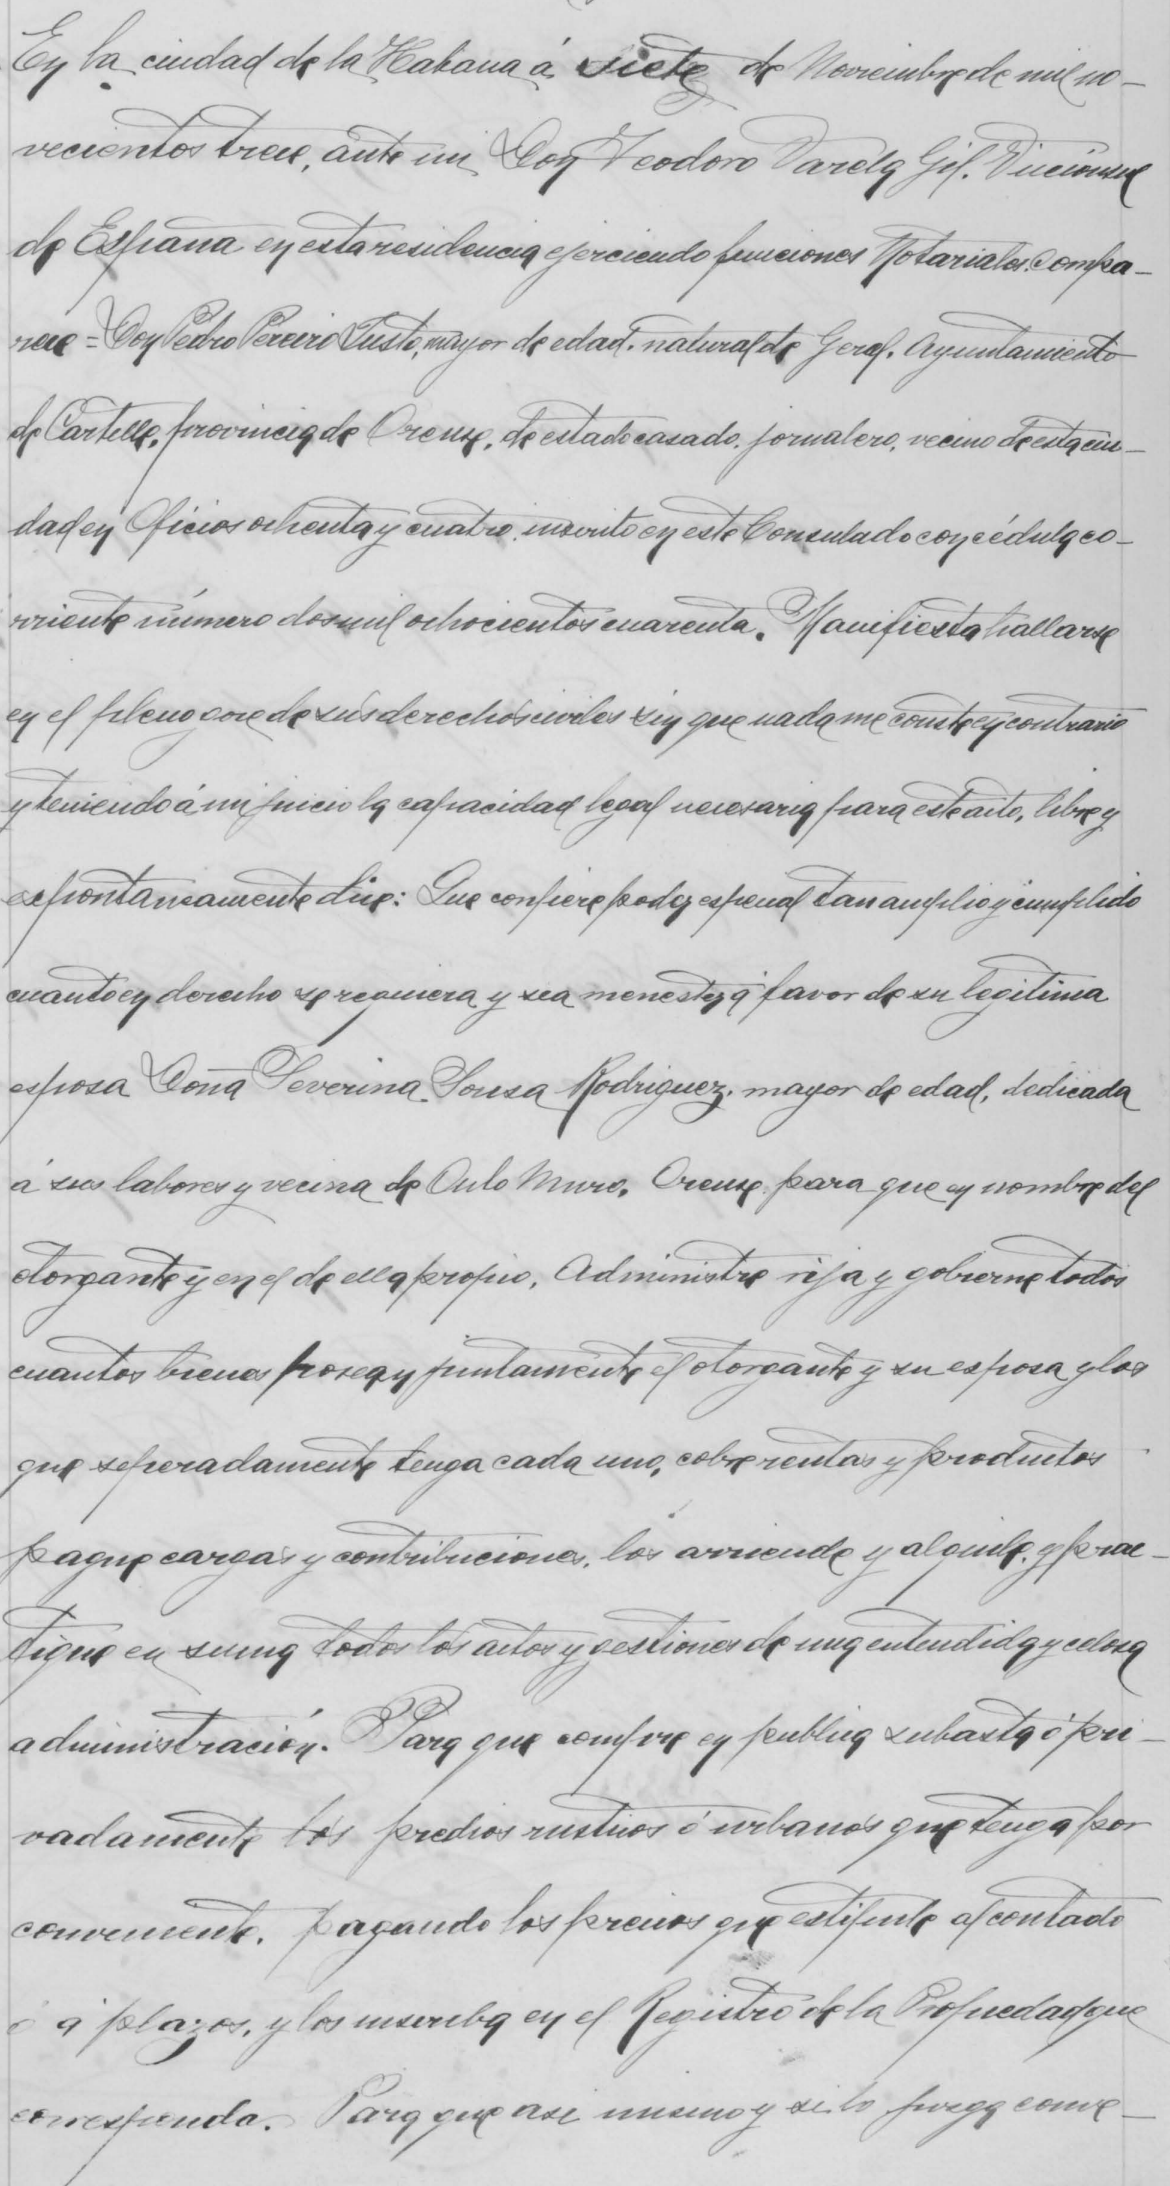 En la ciudad de la Habana á siete de Noviembre de mil no-
vecientos trece, ante mi Don Teodoro Varela Gil. Vicecónsul
de España en esta residencia ejerciendo funciones Notariales. Compa-
rece = Don Pedro Pereiro Justo, mayor de edad, natural de Geral. Ayuntamiento
de Cartelle, provincia de Orense, de estado casado, jornalero, vecino de esta ciu-
dad en Oficios ochenta y cuatro, inscrito en este Consulado con cédula co-
rriente número dos mil ochocientos cuarenta. Manifiesta hallarse
en el pleno goce de sus derechos civiles sin que nada me conste en contrario
y teniendo á mi juicio la capacidad legal necesaria para este acto, libre y
espontaneamente dice: Que confiere poder especial tan amplio y cumplido
cuanto en derecho se requiera y sea menester á favor de su legitima
esposa Doña Severina Sousa Rodriguez, mayor de edad, dedicada
á sus labores y vecina de Outo Muro. Orense para que en nombre del
otorgante y en el de ella propio, Administre rija y gobierne todos
cuantos bienes posean juntamente el otorgante y su esposa y los
que seperadamente tenga cada uno, cobre rentas y productos
pague cargas y contribuciones, los arriende y alquile, y prac-
tique en suma todos los actos y gestiones de una entendida y celosa
administración. Para que compre en publica subasta ó pri-
vadamente los predios rusticos ó urbanos que tenga por
conveniente, pagando los precios que estipule al contado
ó á plazos, y los inscriba en el Registro de la Propiedad que
corresponda. Para que asi mismo y si lo juzga conve-